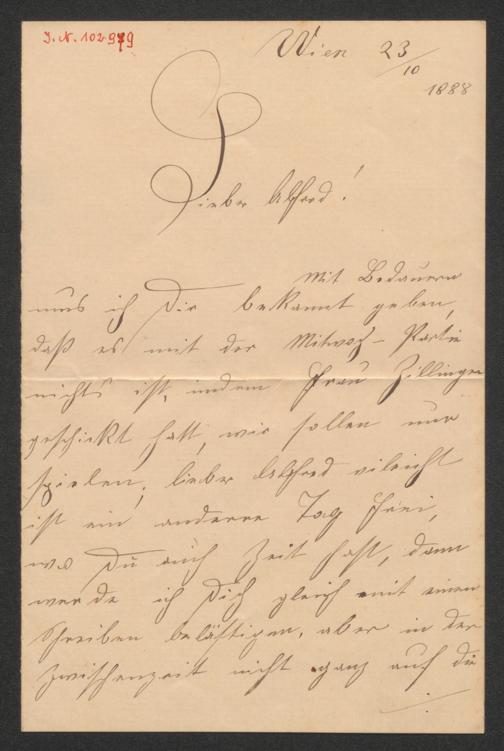 J. N. 102.979
Wien 23/10
1888
Lieber Alfred!
Mit Bedauern
muß ich Dir bekannt geben,
daß es mit der Mitwoch-Partie
nichts ist, indem Frau Zillinger
geschickt hatt, wir sollen nur
spielen, lieber Alfred vileicht
ist ein anderer Tag frei,
wo Du auch Zeit hast, dann
werde ich Dich gleich mit einen
Schreiben belästigen, aber in der
Zwischenzeit nicht ganz auf die